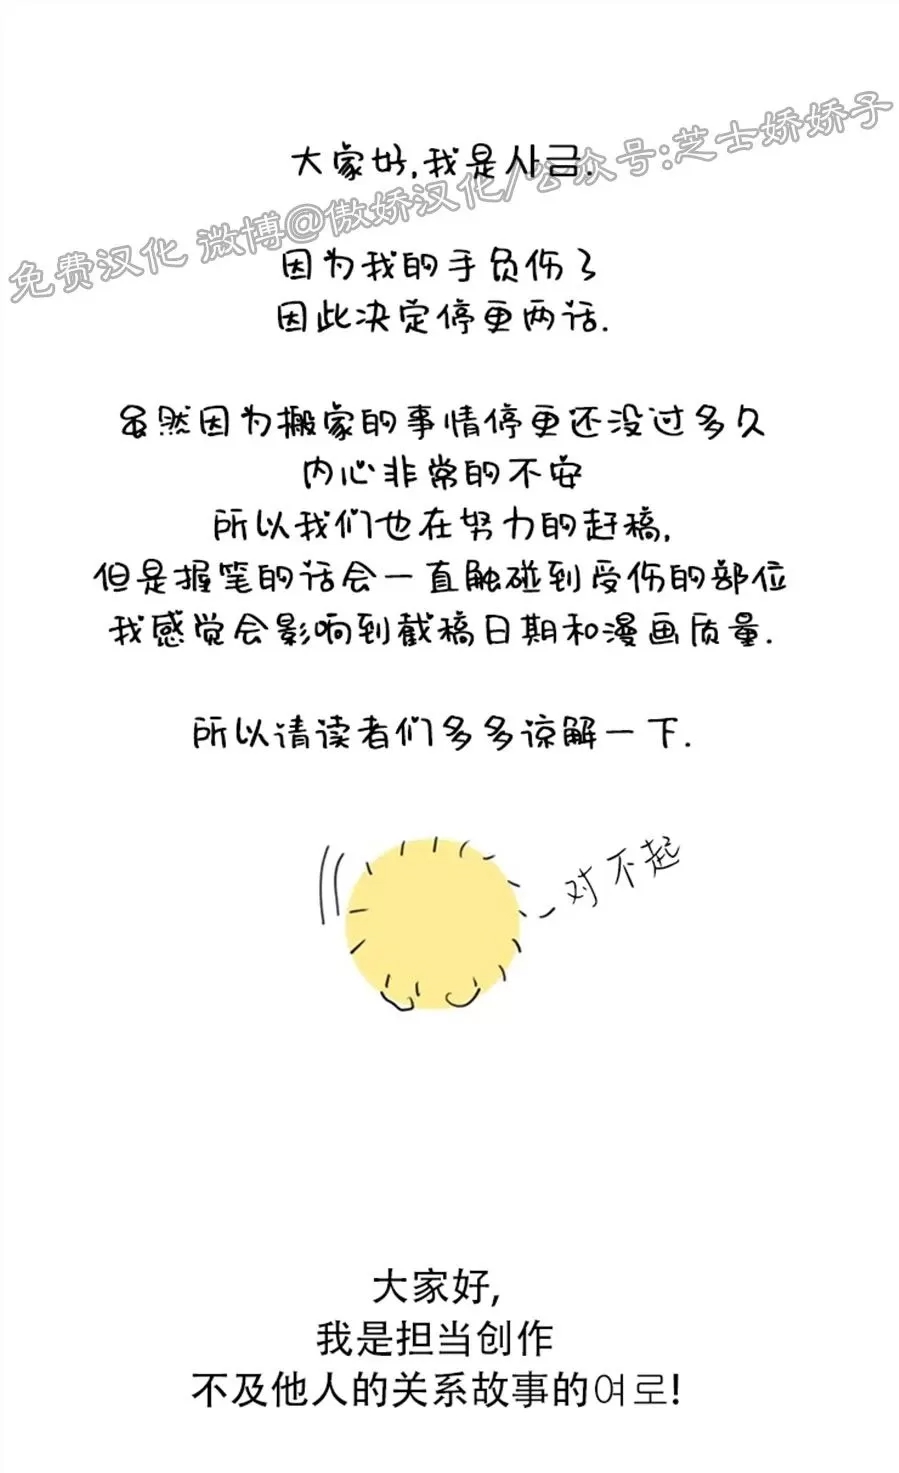 免费汉化 微博@傲娇汉化/公众号:芝士娇娇子
大家好,我是사금.
因为我的手负伤了
因此决定停更两话.
虽然因为搬家的事情停更还没过多久
内心非常的不安
所以我们也在努力的赶稿,
但是握笔的话会一直触碰到受伤的部位
我感觉会影响到截稿日期和漫画质量.
所以请读者们多多谅解一下.
对不起
大家好,
我是担当创作
不及他人的关系故事的여로!